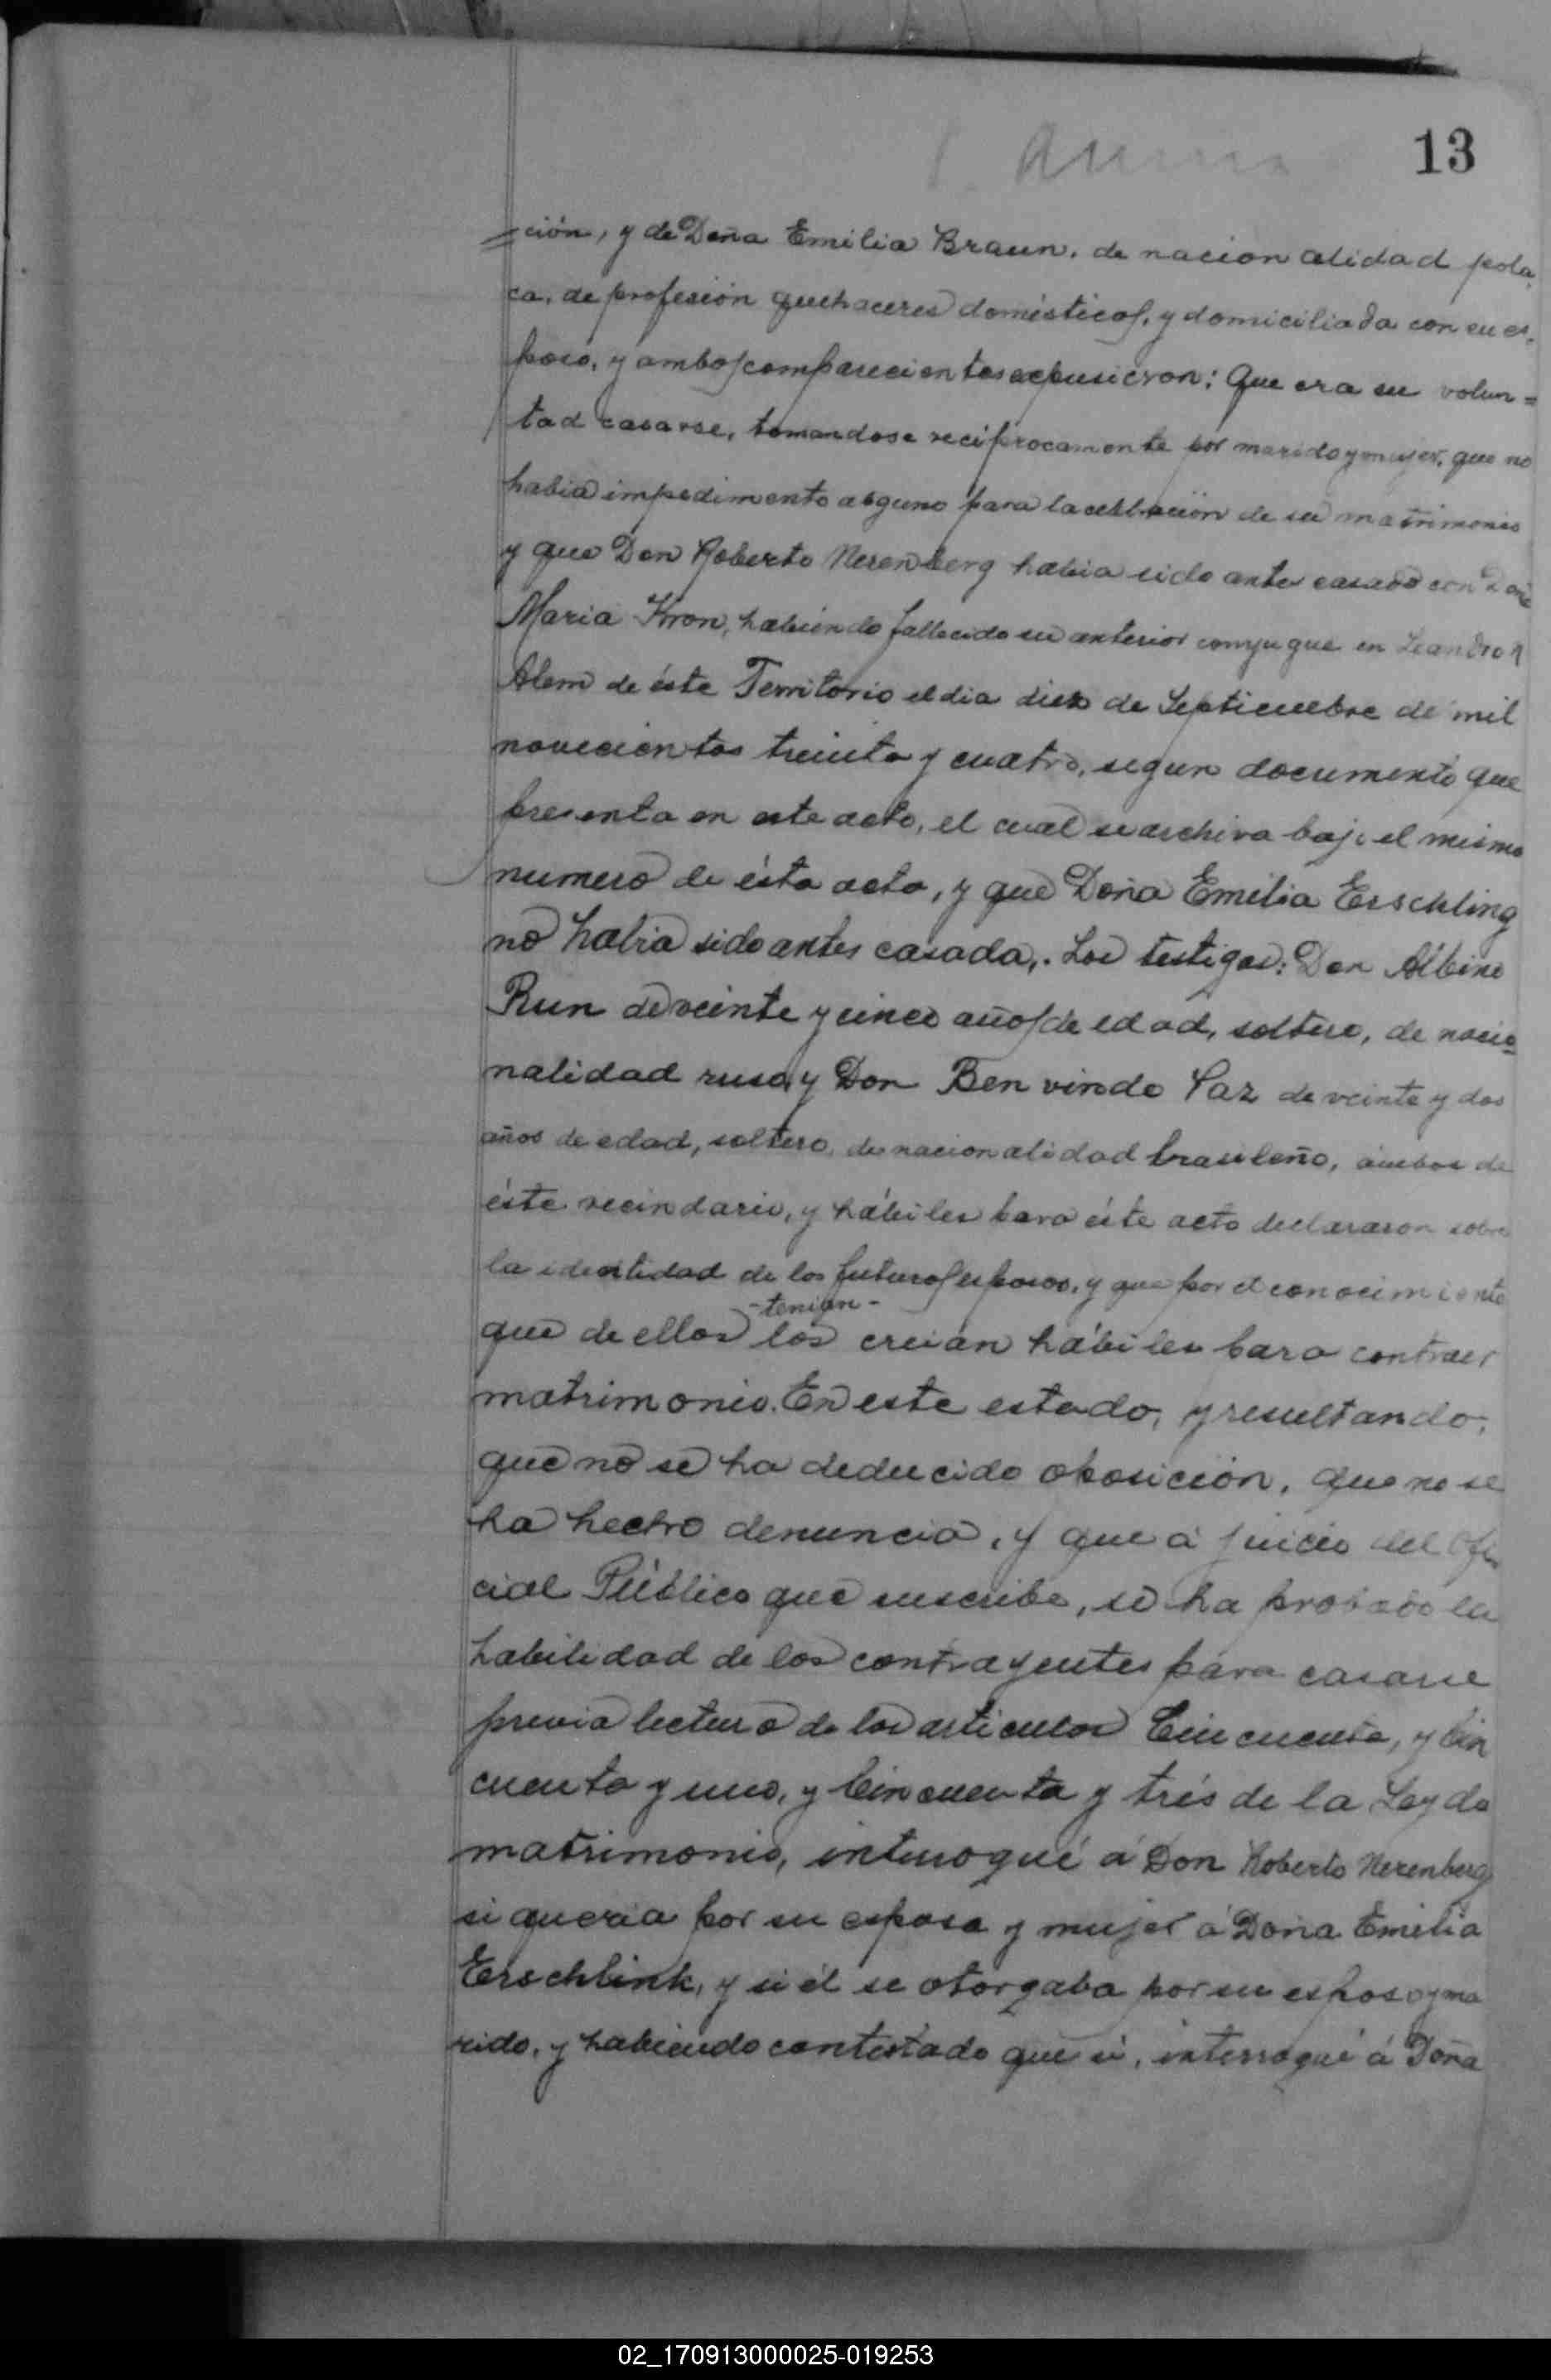 13
=ción, y de Doña Emilia Braun, de nacionalidad pola,
ca, de profesión quehaceres domésticos, y domiciliada con su es,
poso, y ambos comparecientes expusieron: Que era su volun=
tad casarse, tomandose reciprocamente por marido y mujer, que no
habia impedimento alguno para la celebración de su matrimonio
y que Don Roberto Nerenberg habia sido antes casado con Doña
Maria Kron, habiendo fallecido su anterior conyugue en Leandro N
Alem de éste Territorio el dia diez de Septiembre de mil
novecientos treinta y cuatro, segun documento que
presenta en este acto, el cual se archiva bajo el mismo
numero de ésta acta, y que Doña Emilia Erschling
no habia sido antes casada,. Los testigos: Don Albino
Run de veinte y cinco años de edad, soltero, de nacio=
nalidad rusa, y Don Benvindo Paz de veinte y dos
años de edad, soltero, de nacionalidad brasileño, ambos de
éste vecindario, y hábiles para éste acto declararon sobre
la identidad de los futuros esposos, y que por el conocimiento
-tenian-
que de ellos los creian hábiles para contraer
matrimonio. En este estado, y resultando,
que no se ha deducido oposición, que no se
ha hecho denuncia, y que á juicio del Ofi
cial Público que suscribe, se ha probado la
habilidad de los contrayentes para casarse
previa lectura de los articulos Cincuenta, y Cin
cuenta y uno, y Cincuenta y trés de la Ley de
matrimonio, interrogué á Don Roberto Nerenberg
si queria por su esposa y mujer á Doña Emilia
Erschlink, y si él se otorgaba por su esposo y ma
rido, y habiendo contestado que si, interrogué á Doña
02_170913000025-019253